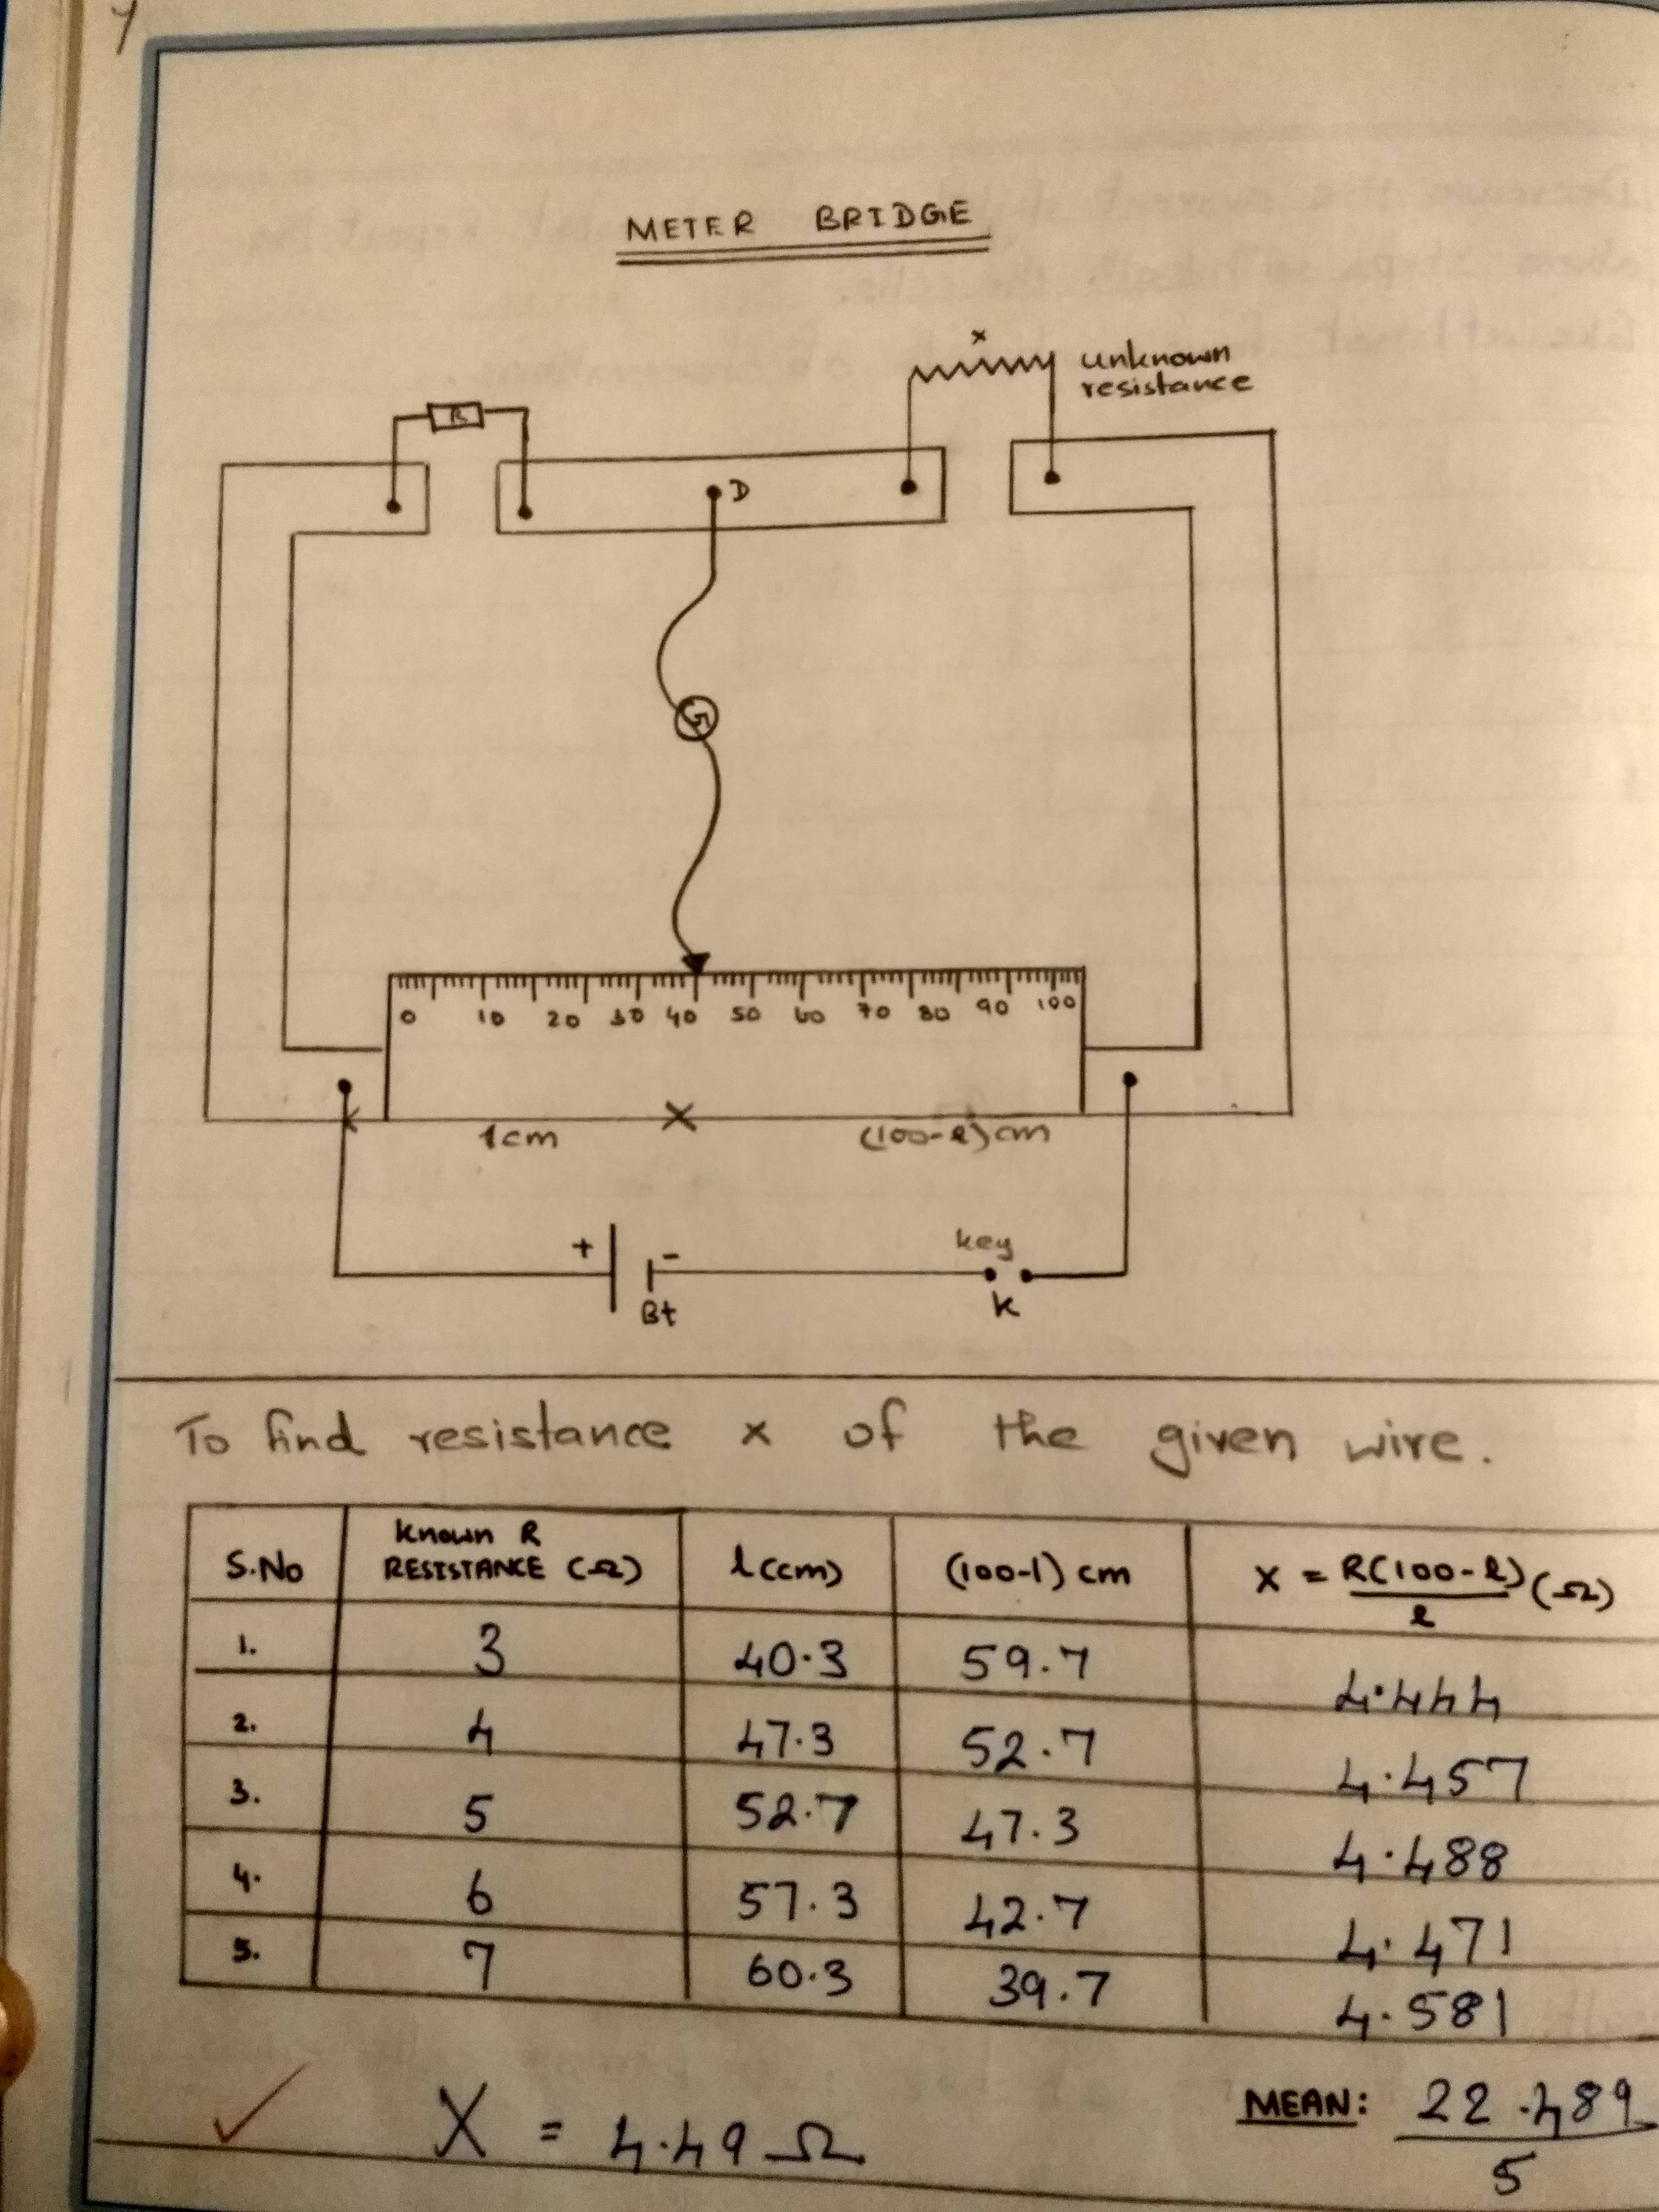 METER BRIDGE
x
unknown
resistance
R
D
G
0 10 20 30 40 50 60 70 80 90 100
1cm X (100-l) cm
+ -
Bt
key
K
To find resistance x of the given wire.
S.No Known R RESISTANCE (Ω) l (cm) (100-l) cm X = R(100-l)/l (Ω)
1. 3 40.3 59.7 4.444
2. 4 47.3 52.7 4.457
3. 5 52.7 47.3 4.488
4. 6 57.3 42.7 4.471
5. 7 60.3 39.7 4.581
X = 4.49 Ω
MEAN: 22.489/5